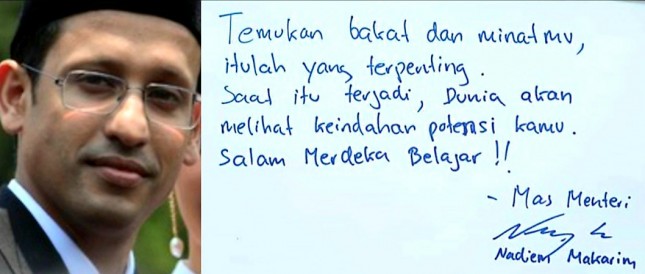 Temukan bakat dan minatmu,
itulah yang terpenting.
Saat itu terjadi, Dunia akan
melihat keindahan potensi kamu.
Salam Merdeka Belajar !!
- Mas Menteri
Nadiem Makarim